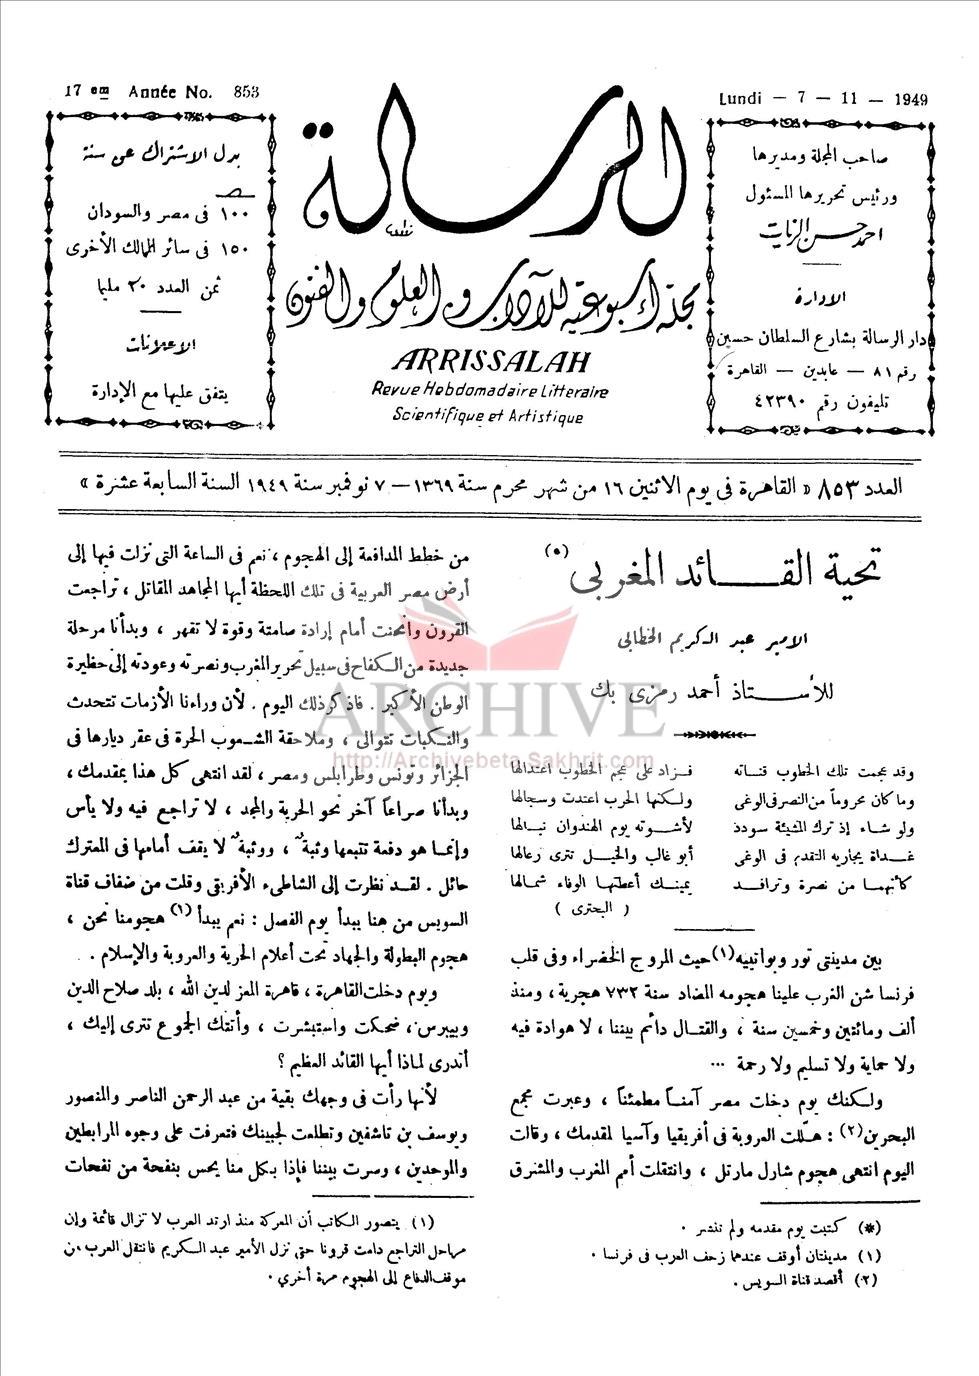 17 em Année No. 853
Lundi - 7 - 11 - 1949
صاحب المجلة ومديرها
ورئيس تحريرها المسئول
احمد حسن الزيات
الادارة
دار الرسالة بشارع السلطان حسين
رقم ٨١ — عابدين — القاهرة
تليفون رقم ٤٢٣٩٠
الرسالة
مجلة أسبوعية للآداب والعلوم والفنون
ARRISSALAH
Revue Hebdomadaire Litteraire
Scientifique et Artistique
بدل الاشتراك عن سنة
١٠٠ فى مصر والسودان
١٥٠ فى سائر الممالك الأخرى
ثمن العدد ٢٠ مليما
الاعلانات
يتفق عليها مع الإدارة
العدد ٨٥٣ « القاهرة فى يوم الاثنين ١٦ من شهر محرم سنة ١٣٦٩ — ٧ نوفمبر سنة ١٩٤٩ السنة السابعة عشرة »
تحية القـائد المغربى (٥)
الامير عبد الكريم الخطابى
للأستاذ أحمد رمزى بك
وقد عجمت تلك الخطوب قناته فزاد على عجم الخطوب اعتدالها
وما كان محروماً من النصر فى الوغى ولكنها الحرب اعتدت وسجالها
ولو شاء إذ ترك المشيئة سودد لأشوته يوم الهندوان نبالها
غداة يجاريه التقدم فى الوغى أبو غالب والخيل تترى رعالها
كأنهما من نصرة وترافد يمينك أعطتها الوفاء شمالها
( البحترى )
بين مدينتى تور وبواتييه (١) حيث المروج الخضراء وفى قلب
فرنسا شن الغرب علينا هجومه المضاد سنة ٧٣٢ هجرية ، ومنذ
ألف ومائتين وخمسين سنة ، والقتال دائم بيننا ، لا هوادة فيه
ولا حماية ولا تسليم ولا رحمة ...
ولكنك يوم دخلت مصر آمناً مطمئناً ، وعبرت مجمع
البحرين (٢) : هللت العروبة فى أفريقيا وآسيا لمقدمك ، وقالت
اليوم انتهى هجوم شارل مارتل ، وانتقلت أمم المغرب والمشرق
(*) كتبت يوم مقدمه ولم تنشر .
(١) مدينتان أوقف عندهما زحف العرب فى فرنسا .
(٢) أقصد قناة السويس .
من خطط المدافعة إلى الهجوم ، نعم فى الساعة التى نزلت فيها إلى
أرض مصر العربية فى تلك اللحظة أيها المجاهد المقاتل ، تراجعت
القرون وامحنت أمام إرادة صامتة وقوة لا تقهر ، وبدأنا مرحلة
جديدة من الكفاح فى سبيل تحرير المغرب ونصرته وعودته إلى حظيرة
الوطن الأكبر . فاذكر ذلك اليوم . لأن وراءنا الأزمات تتحدث
والنكبات تتوالى ، وملاحقة الشعوب الحرة فى عقر ديارها فى
الجزائر وتونس وطرابلس ومصر ، لقد انتهى كل هذا بمقدمك ،
وبدأنا صراعاً آخر نحو الحرية والمجد ، لا تراجع فيه ولا يأس
وإنما هو دفعة تتبعها وثبة ، ووثبة لا يقف أمامها فى المعترك
حائل . لقد نظرت إلى الشاطىء الأفريقى وقلت من ضفاف قناة
السويس من هنا يبدأ يوم الفصل : نعم يبدأ (١) هجومنا نحن ،
هجوم البطولة والجهاد تحت أعلام الحرية والعروبة والإسلام .
ويوم دخلت القاهرة ، قاهرة المعز لدين الله ، بلد صلاح الدين
وبيبرس ، ضحكت واستبشرت ، وأتتك الجموع تترى إليك ،
أتدرى لماذا أيها القائد العظيم ؟
لأنها رأت فى وجهك بقية من عبد الرحمن الناصر والمنصور
ويوسف بن تاشفين وتطلعت لجبينك فتعرفت على وجوه المرابطين
والموحدين ، وسرت بيننا فإذا بكل منا يحس بنفحة من نفحات
(١) يتصور الكاتب أن المعركة منذ ارتد العرب لا تزال قائمة وإن
مراحل التراجع دامت قرونا حتى نزل الأمير عبد الكريم فانتقل العرب من
موقف الدفاع إلى الهجوم مرة أخرى .
ARCHIVE
http://Archivebeta.Sakhrit.com